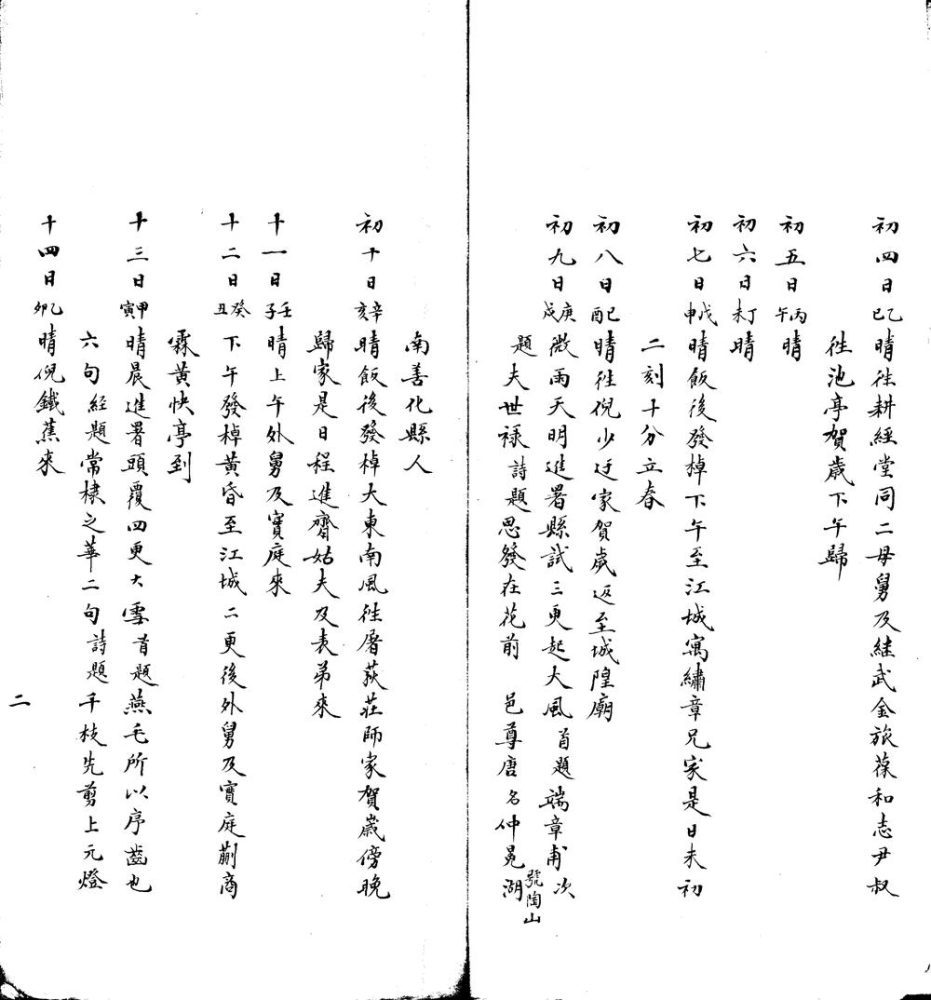 初四日乙巳晴往耕經堂同二母舅及絓武金旅葆和志尹叔
往池亭賀歲下午歸
初五日丙午晴
初六日丁未晴
初七日戊申晴飯後發棹下午至江城寓繡章兄家是日未初
二刻十分立春
初八日己酉晴往倪少迂家賀歲返至城隍廟
初九日庚戌微雨天明進署縣試三更起大風首題端章甫次
題夫世祿詩題思發在花前 邑尊唐名仲冕號陶山湖
南善化縣人
初十日辛亥晴飯後發棹大東南風往屠荻莊師家賀歲傍晚
歸家是日程進齋姑夫及表弟來
十一日壬子晴上午外舅及實庭來
十二日癸丑下午發棹黃昏至江城二更後外舅及實庭蒯商
霖黃快亭到
十三日甲寅晴晨進署頭覆四更大雪首題燕毛所以序齒也
六句經題常棣之華二句詩題千枝先剪上元燈
十四日乙卯晴倪鐵蕉來
二